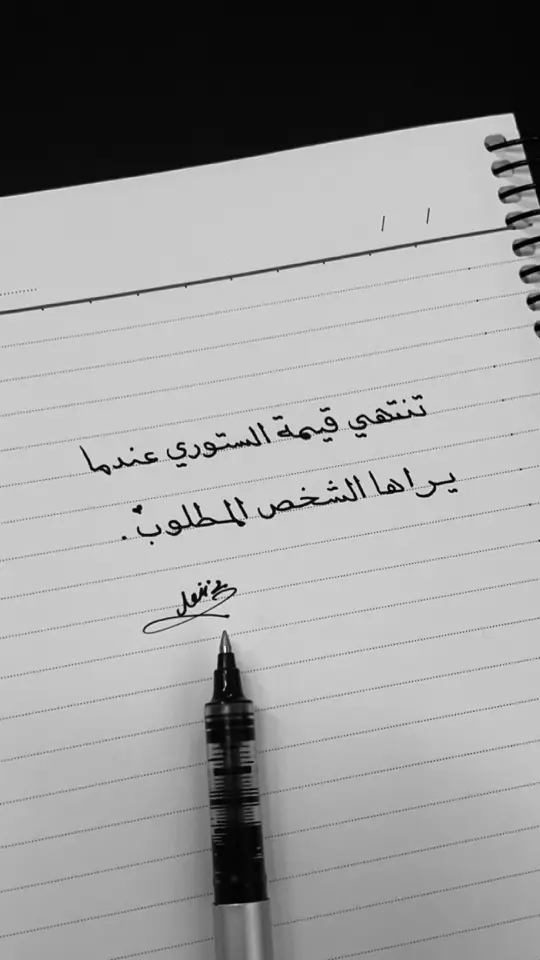 / /
تنتهي قيمة الستوري عندما
يراها الشخص المطلوب.